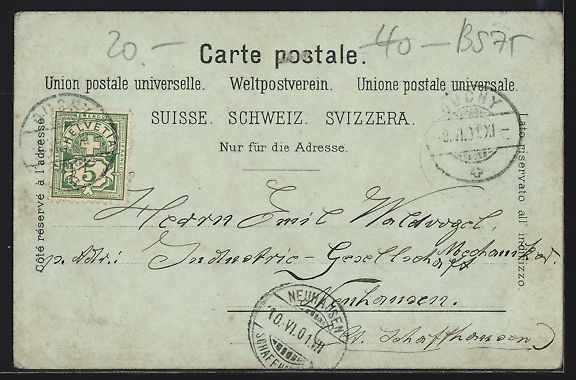 20.- 40 - BS75
Carte postale.
Union postale universelle. Weltpostverein. Unione postale universale.
SUISSE. SCHWEIZ. SVIZZERA.
Nur für die Adresse.
Côté réservé à l'adresse.
Lato riservato all' indirizzo.
HELVETIA
5
OUCHY
Herrn Emil Waldvogel,
Industrie-Gesellschaft
Neuhausen.
Ct. Schaffhausen
NEUHAUSEN
10.VI.01.